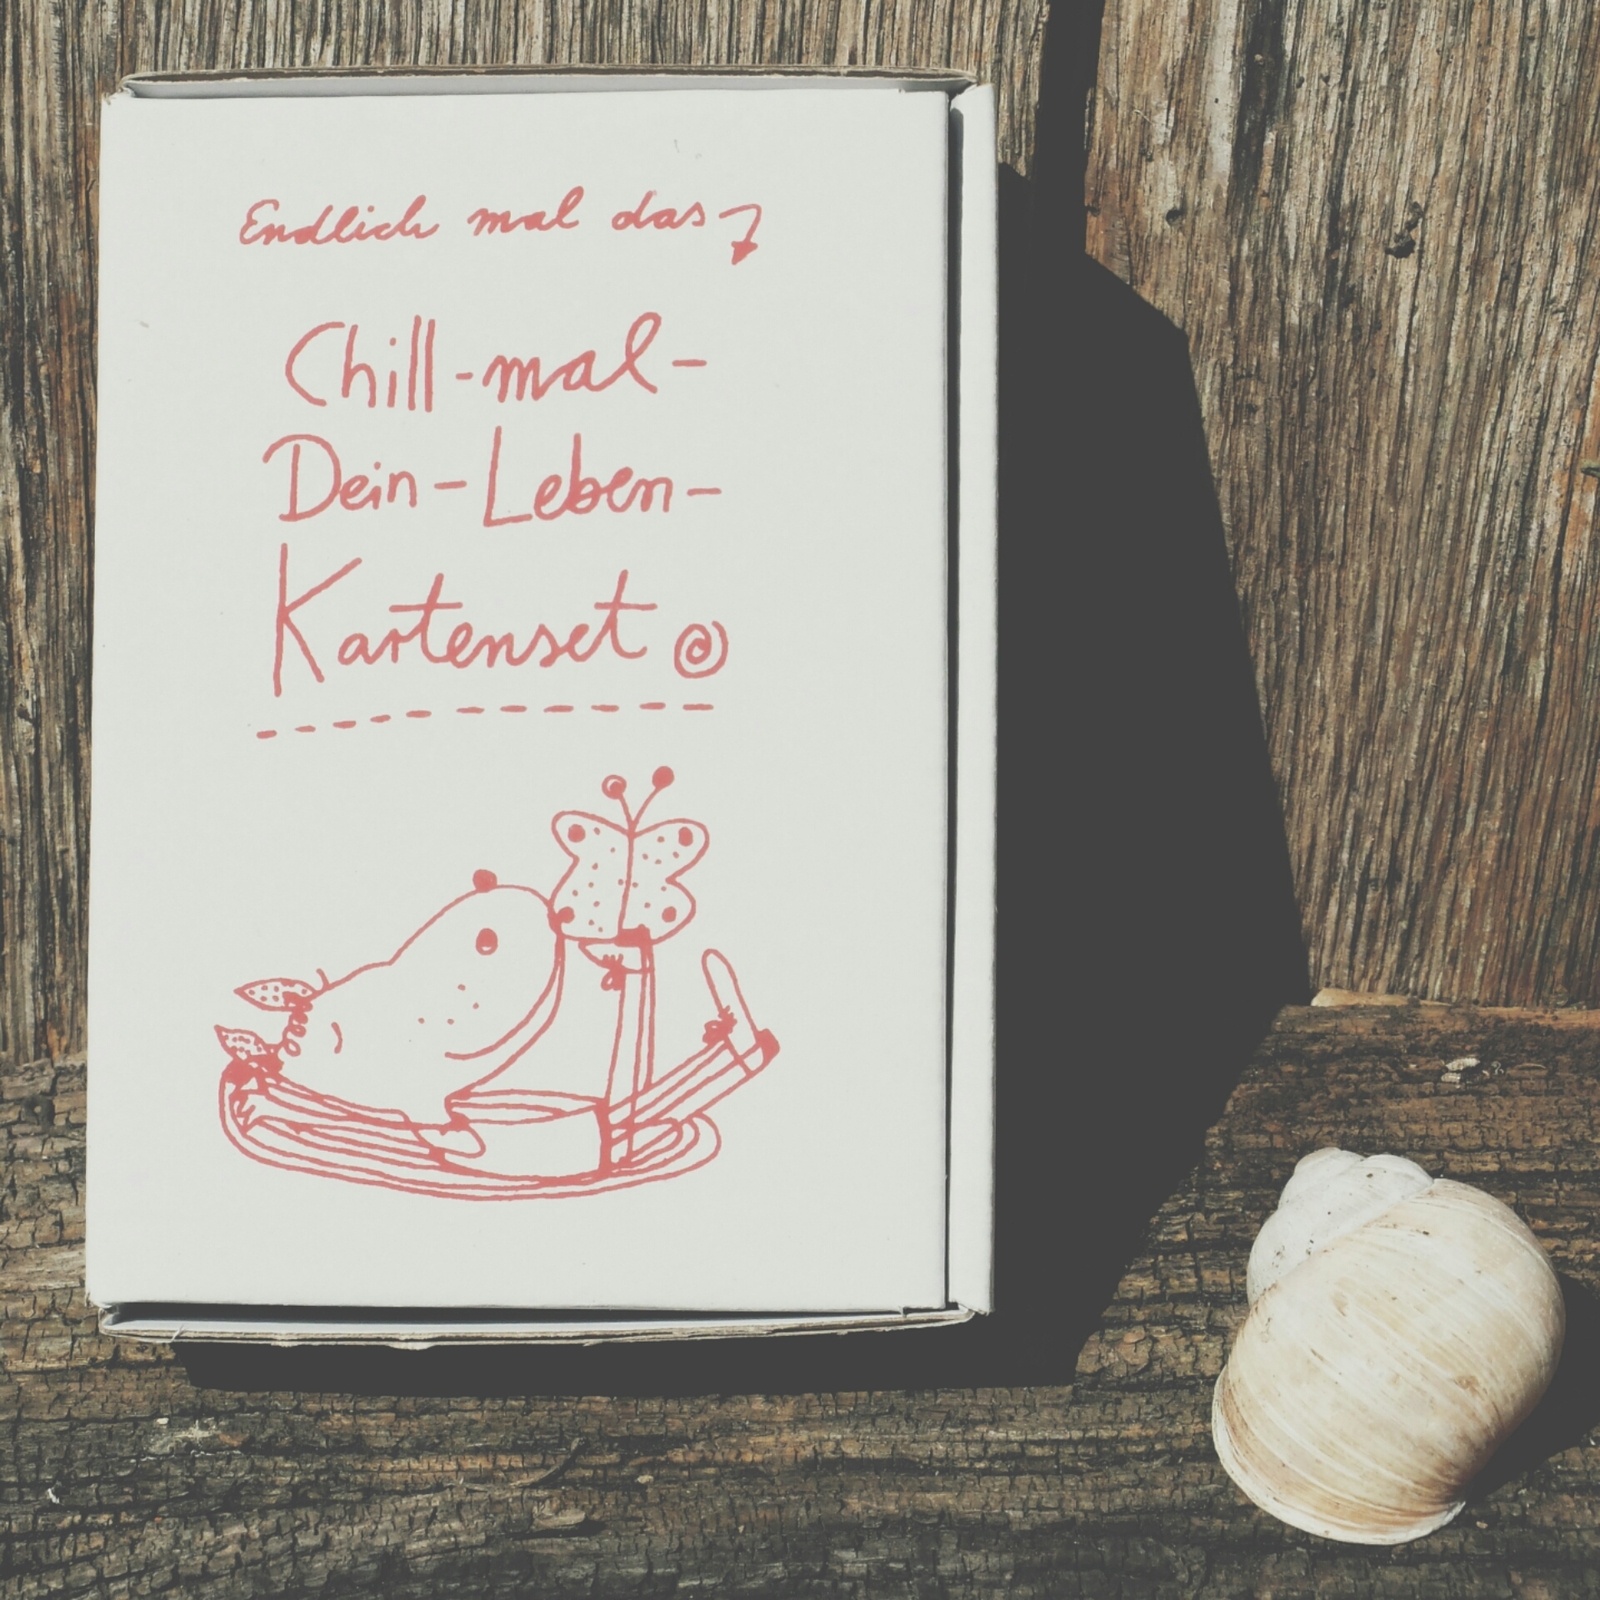 Endlich mal das
Chill-mal-
Dein-Leben-
Kartenset @